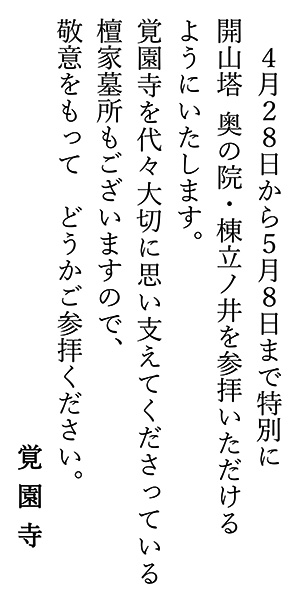 ４月２８日から５月８日まで特別に
開山塔 奥の院・棟立ノ井を参拝いただける
ようにいたします。
覚園寺を代々大切に思い支えてくださっている
檀家墓所もございますので、
敬意をもって　どうかご参拝ください。
覚園寺